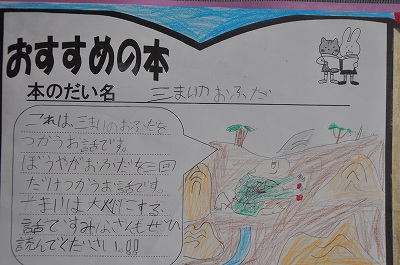 おすすめの本
本のだい名 三まいのおふだ
これは、三まいのおふだを
つかうお話です。
ぼうやがおふだを三回
だけつかうお話です。
さいごは大
話です。みなさんもぜひ
読んでください。!!